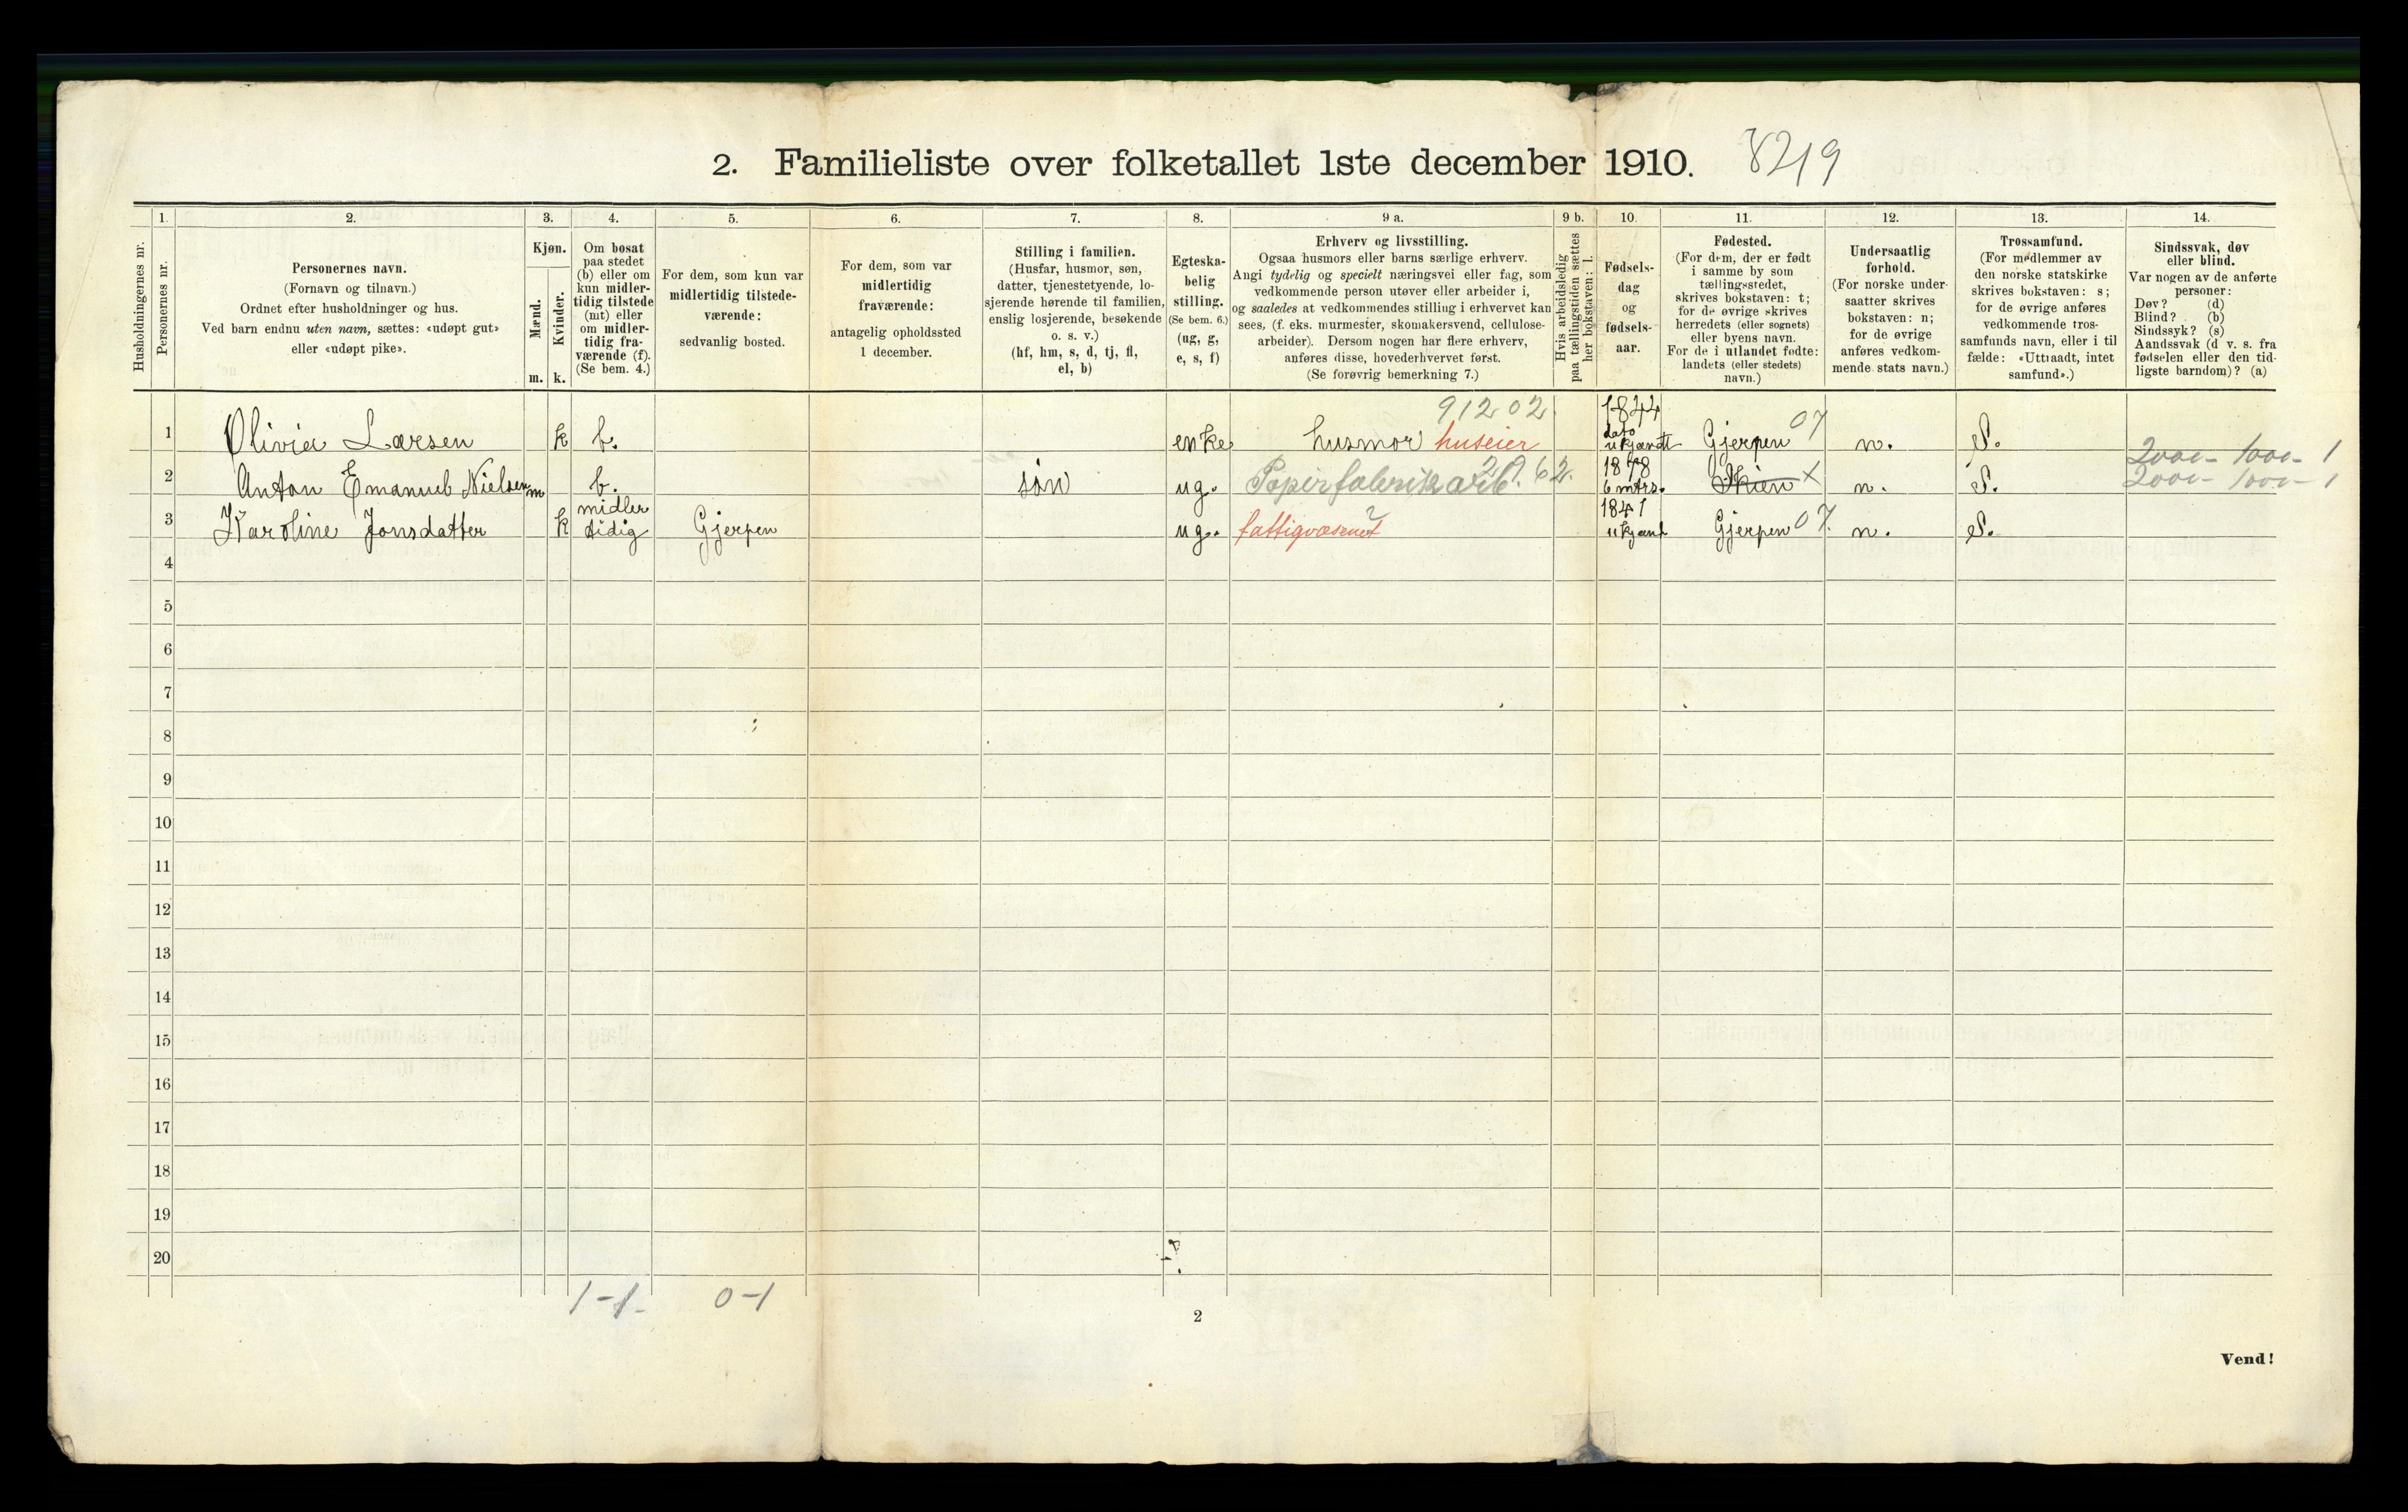 2. Familieliste over folketallet 1ste december 1910. 8219
Husholdningernes nr.
1.
Personernes nr.
2.
Personernes navn.
(Fornavn og tilnavn.)
Ordnet efter husholdninger og hus.
Ved barn endnu uten navn, sættes: «udøpt gut»
eller «udøpt pike».
3.
Kjøn.
Mænd.
Kvinder.
m. k.
4.
Om bosat
paa stedet
(b) eller om
kun midler-
tidig tilstede
(mt) eller
om midler-
tidig fra-
værende (f).
(Se bem. 4.)
5.
For dem, som kun var
midlertidig tilstede-
værende:
sedvanlig bosted.
6.
For dem, som var
midlertidig
fraværende:
antagelig opholdssted
1 december.
7.
Stilling i familien.
(Husfar, husmor, søn,
datter, tjenestetyende, lo-
sjerende hørende til familien,
enslig losjerende, besøkende
o. s. v.)
(hf, hm, s, d, tj, fl,
el, b)
8.
Egteska-
belig
stilling.
(Se bem. 6.)
(ug, g,
e, s, f)
9 a.
Erhverv og livsstilling.
Ogsaa husmors eller barns særlige erhverv.
Angi tydelig og specielt næringsvei eller fag, som
vedkommende person utøver eller arbeider i,
og saaledes at vedkommendes stilling i erhvervet kan
sees, (f. eks. murmester, skomakersvend, cellulose-
arbeider). Dersom nogen har flere erhverv,
anføres disse, hovederhvervet først.
(Se forøvrig bemerkning 7.)
9 b.
Hvis arbeidsledig
paa tællingstiden sættes
her bokstaven: l.
10.
Fødsels-
dag
og
fødsels-
aar.
11.
Fødested.
(For dem, der er født
i samme by som
tællingsstedet,
skrives bokstaven: t;
for de øvrige skrives
herredets (eller sognets)
eller byens navn.
For de i utlandet fødte:
landets (eller stedets)
navn.)
12.
Undersaatlig
forhold.
(For norske under-
saatter skrives
bokstaven: n;
for de øvrige
anføres vedkom-
mende stats navn.)
13.
Trossamfund.
(For medlemmer av
den norske statskirke
skrives bokstaven: s;
for de øvrige anføres
vedkommende tros-
samfunds navn, eller i til
fælde: «Uttraadt, intet
samfund».)
14.
Sindssvak, døv
eller blind.
Var nogen av de anførte
personer:
Døv? (d)
Blind? (b)
Sindssyk? (s)
Aandssvak (d v. s. fra
fødselen eller den tid-
ligste barndom)? (a)
91202 1844
1 Olivia Larsen k b. enke husmor huseier dato ukjændt Gjerpen 07 n. S.
2000- 1000- 1
2 Anton Emanuel Nielsen m b. søn ug. Papirfabrikarb. 1878 6 mtrs. Skien x n. S. 2000- 1000- 1
3 Karoline Jonsdatter k midler tidig Gjerpen ug. fattigvæsenet 1841 ukjent Gjerpen 07. n. S.
4
5
6
7
8
9
10
11
12
13
14
15
16
17
18
19
20
1-1- 0-1
2
Vend!